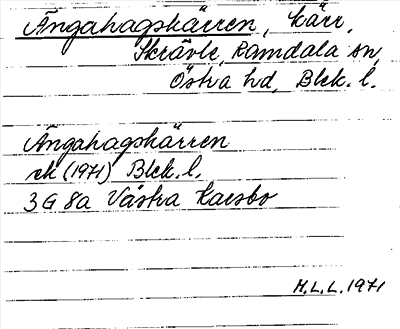 Ängahagskärren, kärr,
Skrävle, Ramdala sn,
Östra hd, Blek. l.
Ängahagskärren
ek (1971) Blek. l.
3G 8a Västra Karsbo
M.L.L. 1971